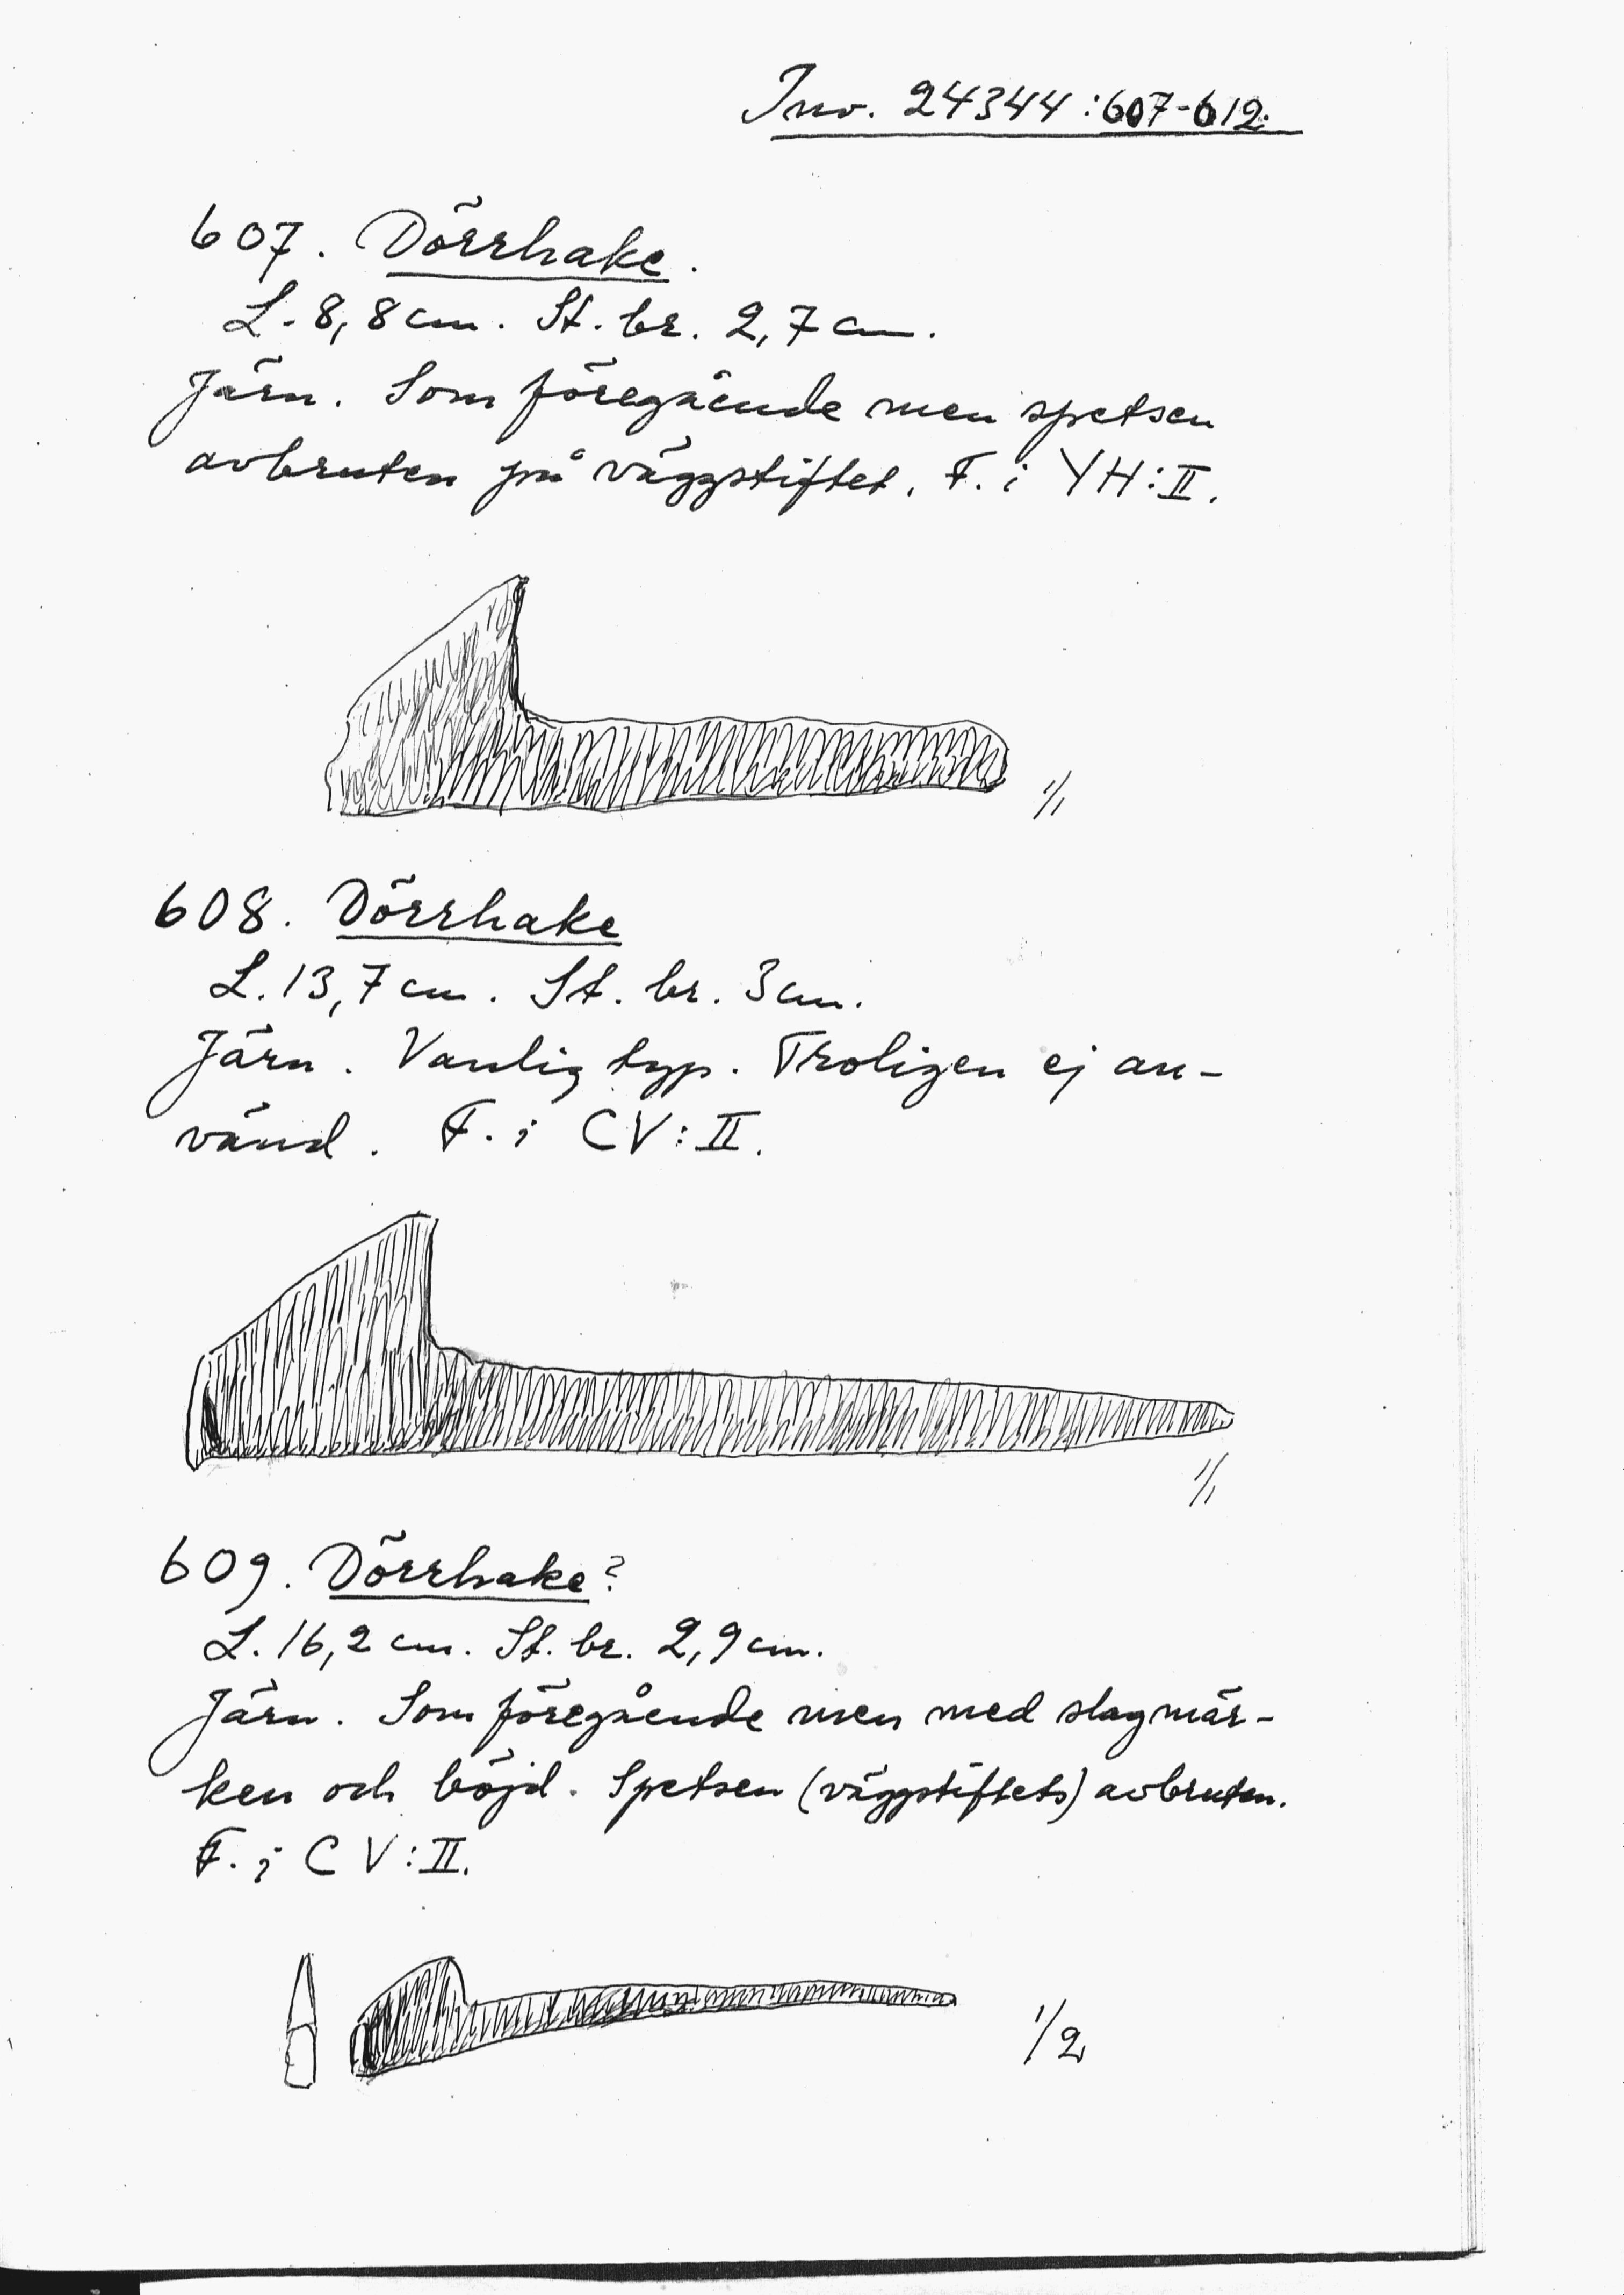 Inv. 24344:607-612.
607. Dörrhake.
L. 8,8 cm. St. br. 2,7 cm.
Järn. Som föregående men spetsen
avbruten på väggstiftet. F. i YH:II.
1/1
608. Dörrhake
L. 13,7 cm. St. br. 3 cm.
Järn. Vanlig typ. Troligen ej an-
vänd. F. i CV:II.
1/1
609. Dörrhake?
L. 16,2 cm. St. br. 2,9 cm.
Järn. Som föregående men med slagmär-
ken och böjd. Spetsen (väggstiftets) avbruten.
F. i CV:II.
1/2